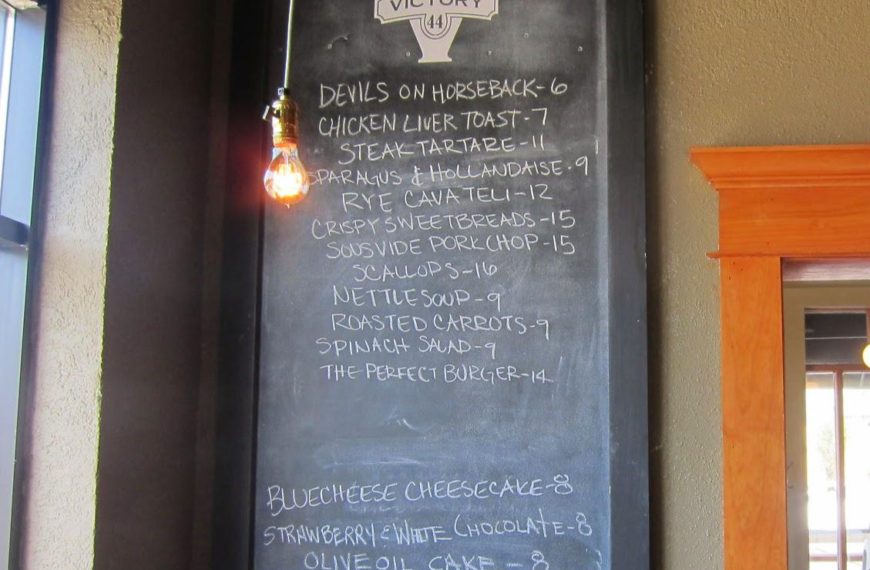 VICTORY
44
DEVILS ON HORSEBACK-6
CHICKEN LIVER TOAST-7
STEAK TARTARE-11
SPARAGUS & HOLLANDAISE-9
RYE CAVATELI-12
CRISPY SWEETBREADS-15
SOUSVIDE PORKCHOP-15
SCALLOPS-16
NETTLE SOUP-9
ROASTED CARROTS-9
SPINACH SALAD-9
THE PERFECT BURGER-14
BLUECHEESE CHEESECAKE-8
STRAWBERRY & WHITE CHOCOLATE-8
OLIVE OIL CAKE-8